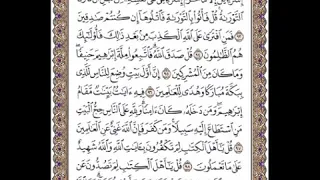 ٱلتَّوْرَىٰةُ قُلْ فَأْتُوا۟ بِٱلتَّوْرَىٰةِ فَٱتْلُوهَآ إِن كُنتُمْ صَٰدِقِينَ
﴿٩٣﴾ فَمَنِ ٱفْتَرَىٰ عَلَى ٱللَّهِ ٱلْكَذِبَ مِنۢ بَعْدِ ذَٰلِكَ فَأُو۟لَٰٓئِكَ
هُمُ ٱلظَّٰلِمُونَ ﴿٩٤﴾ قُلْ صَدَقَ ٱللَّهُ فَٱتَّبِعُوا۟ مِلَّةَ إِبْرَٰهِيمَ حَنِيفًا
وَمَا كَانَ مِنَ ٱلْمُشْرِكِينَ ﴿٩٥﴾ إِنَّ أَوَّلَ بَيْتٍ وُضِعَ لِلنَّاسِ لَلَّذِى
بِبَكَّةَ مُبَارَكًا وَهُدًى لِّلْعَٰلَمِينَ ﴿٩٦﴾ فِيهِ ءَايَٰتٌۢ بَيِّنَٰتٌ مَّقَامُ
إِبْرَٰهِيمَ وَمَن دَخَلَهُۥ كَانَ ءَامِنًا وَلِلَّهِ عَلَى ٱلنَّاسِ حِجُّ ٱلْبَيْتِ
مَنِ ٱسْتَطَاعَ إِلَيْهِ سَبِيلًا وَمَن كَفَرَ فَإِنَّ ٱللَّهَ غَنِىٌّ عَنِ ٱلْعَٰلَمِينَ
﴿٩٧﴾ قُلْ يَٰٓأَهْلَ ٱلْكِتَٰبِ لِمَ تَكْفُرُونَ بِـَٔايَٰتِ ٱللَّهِ وَٱللَّهُ شَهِيدٌ
عَلَىٰ مَا تَعْمَلُونَ ﴿٩٨﴾ قُلْ يَٰٓأَهْلَ ٱلْكِتَٰبِ لِمَ تَصُدُّونَ عَن